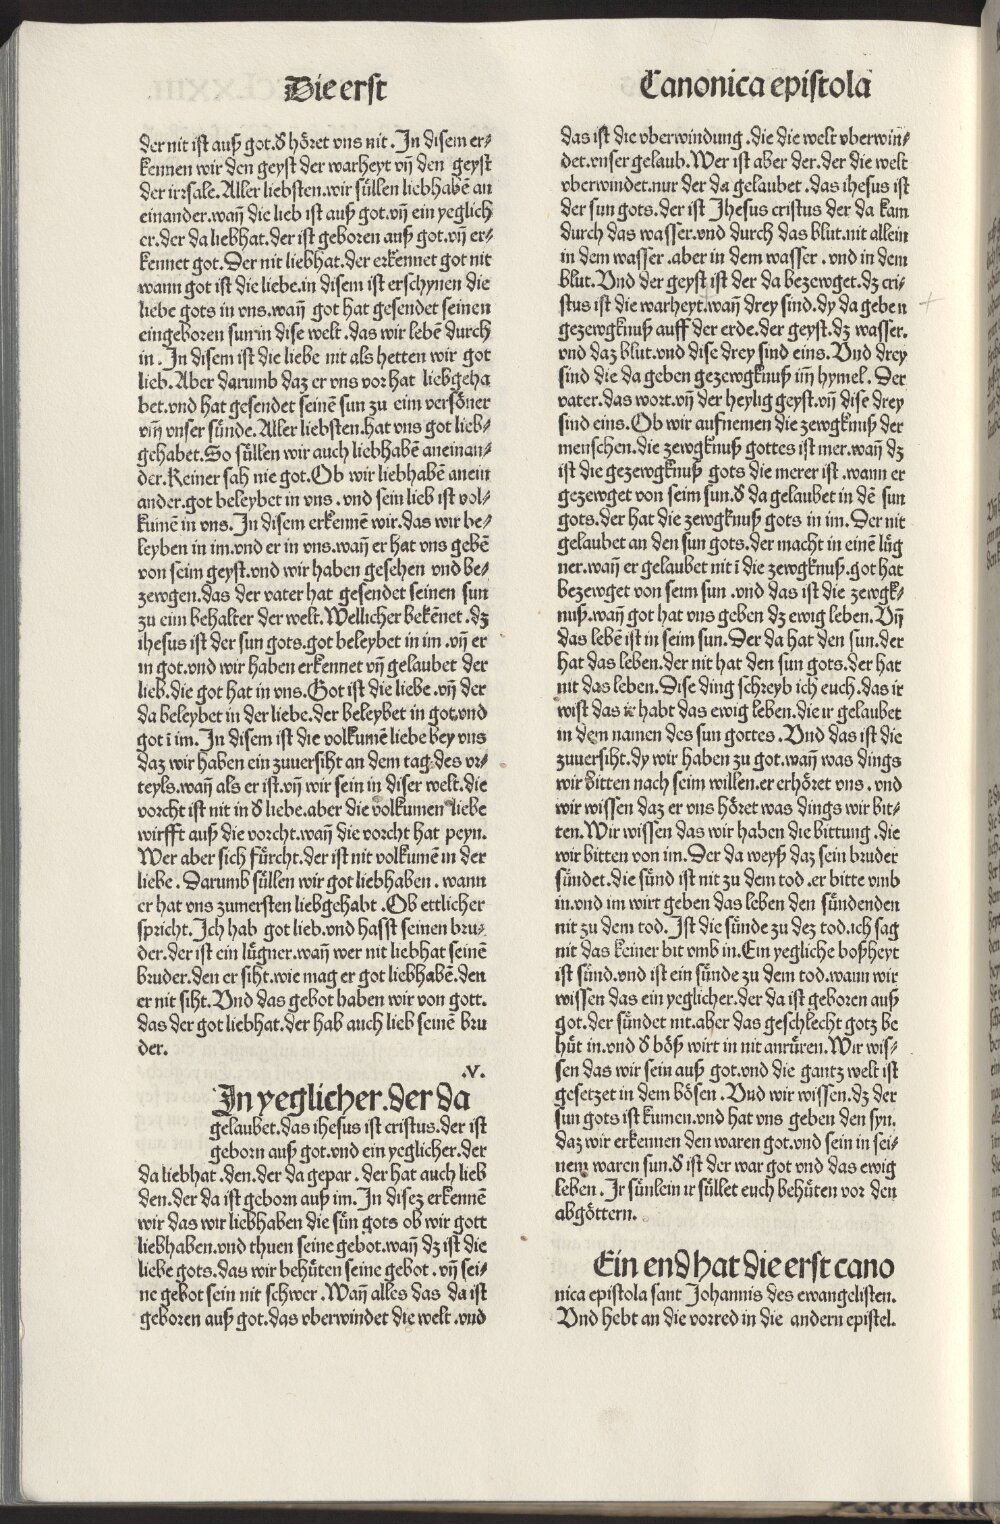 Die erst
Canonica epistola
der nit ist auß got.ď höret vns nit. In disem er⸗
kennen wir den geyst der warheyt vñ den geyst
der irrsale. Aller liebsten.wir süllen liebhabē an
einander.wañ die lieb ist auß got.vñ ein yeglich
er.der da liebhat.der ist geboren auß got.vñ er⸗
kennet got. Der nit liebhat.der erkennet got nit
wann got ist die liebe.in disem ist erschynen die
liebe gots in vns.wañ got hat gesendet seinen
eingeboren sun in dise welt.das wir lebē durch
in. In disem ist die liebe nit als hetten wir got
lieb. Aber darumb daz er vns vor hat liebgeha
bet.vnd hat gesendet seinē sun zu eim versöner
vm̄ vnser sünde. Aller liebsten.hat vns got lieb⸗
gehabet. So süllen wir auch liebhabē aneinan⸗
der. Keiner sah nie got. Ob wir liebhabē anein
ander.got beleybet in vns.vnd sein lieb ist vol⸗
kumē in vns. In disem erkennē wir.das wir be⸗
leyben in im.vnd er in vns.wañ er hat vns gebē
von seim geyst.vnd wir haben gesehen vnd be⸗
zewgen.das der vater hat gesendet seinen sun
zu eim behalter der welt. Wellicher bekēnet.dz
ihesus ist der sun gots.got beleybet in im.vñ er
in got.vnd wir haben erkennet vñ gelaubet der
lieb.die got hat in vns. Got ist die liebe.vñ der
da beleybet in der liebe.der beleybet in got.vnd
got ī im. In disem ist die volkumē liebe bey vns
daz wir haben ein zuuersiht an dem tag des vr⸗
teyls.wañ als er ist.vñ wir sein in diser welt.die
vorcht ist nit in ď liebe.aber die volkumen liebe
wirfft auß die vorcht.wañ die vorcht hat peyn.
Wer aber sich fürcht.der ist nit volkumē in der
liebe. Darumb süllen wir got liebhaben. wann
er hat vns zumersten liebgehabt. Ob ettlicher
spricht. Ich hab got lieb.vnd hasst seinen bru⸗
der.der ist ein lügner.wañ wer nit liebhat seinē
bruder.den er siht.wie mag er got liebhabē.den
er nit siht. Vnd das gebot haben wir von gott.
das der got liebhat.der hab auch lieb seinē bru
der.
.V.
In yeglicher.der da
gelaubet.das ihesus ist cristus.der ist
geborn auß got.vnd ein yeglicher.der
da liebhat.den.der da gepar. der hat auch lieb
den.der da ist geborn auß im. In disez erkennē
wir das wir liebhaben die sün gots ob wir gott
liebhaben.vnd thuen seine gebot.wañ dz ist die
liebe gots.das wir behüten seine gebot.vñ sei⸗
ne gebot sein nit schwer. Wañ alles das da ist
geboren auß got.das vberwindet die welt.vnd
das ist die vberwindung.die die welt vberwin⸗
det.vnser gelaub. Wer ist aber der.der die welt
vberwindet.nur der da gelaubet.das ihesus ist
der sun gots.der ist Jhesus cristus der da kam
durch das wasser.vnd durch das blut.nit allein
in dem wasser.aber in dem wasser.vnd in dem
blut. Vnd der geyst ist der da bezewget.dz cri⸗
stus ist die warheyt.wañ drey sind.dy da geben
gezewgknuß auff der erde.der geyst.dz wasser.
vnd daz blut.vnd dise drey sind eins. Vnd drey
sind die da geben gezewgknuß im̄ hymel. Der
vater.das wort.vñ der heylig geyst.vñ dise drey
sind eins. Ob wir aufnemen die zewgknuß der
menschen.die zewgknuß gottes ist mer.wañ dz
ist die gezewgknuß gots die merer ist.wann er
gezewget von seim sun.ď da gelaubet in dē sun
gots.der hat die zewgknuß gots in im. Der nit
gelaubet an den sun gots.der macht in einē lüg
ner.wañ er gelaubet nit ī die zewgknuß.got hat
bezewget von seim sun.vnd das ist die zewgk⸗
nuß.wañ got hat vns geben dz ewig leben. Vñ
das lebē ist in seim sun. Der da hat den sun.der
hat das leben.der nit hat den sun gots.der hat
nit das leben. Dise ding schreyb ich euch.das ir
wist das ir habt das ewig leben.die ir gelaubet
in dem namen des sun gottes. Vnd das ist die
zuuersiht.dy wir haben zu got.wañ was dings
wir bitten nach seim willen.er erhöret vns.vnd
wir wissen daz er vns höret was dings wir bit⸗
ten. Wir wissen das wir haben die bittung.die
wir bitten von im. Der da weyß daz sein bruder
sündet.die sünd ist nit zu dem tod.er bitte vmb
in.vnd im wirt geben das leben den sündenden
nit zu dem tod. Ist die sünde zu dez tod.ich sag
nit das keiner bit vmb in. Ein yegliche boßheyt
ist sünd.vnd ist ein sünde zu dem tod.wann wir
wissen das ein yeglicher.der da ist geboren auß
got.der sündet nit.aber das geschlecht gotz be
hüt in.vnd ď böß wirt in nit anrüren. Wir wis⸗
sen das wir sein auß got.vnd die gantz welt ist
gesetzet in dem bösen. Vnd wir wissen.dz der
sun gots ist kumen.vnd hat vns geben den syn.
daz wir erkennen den waren got.vnd sein in sei⸗
nem waren sun.ď ist der war got vnd das ewig
leben. Ir sünlein ir süllet euch behüten vor den
abgöttern.
Ein end hat die erst cano
nica epistola sant Johannis des ewangelisten.
Vnd hebt an die vorred in die andern epistel.